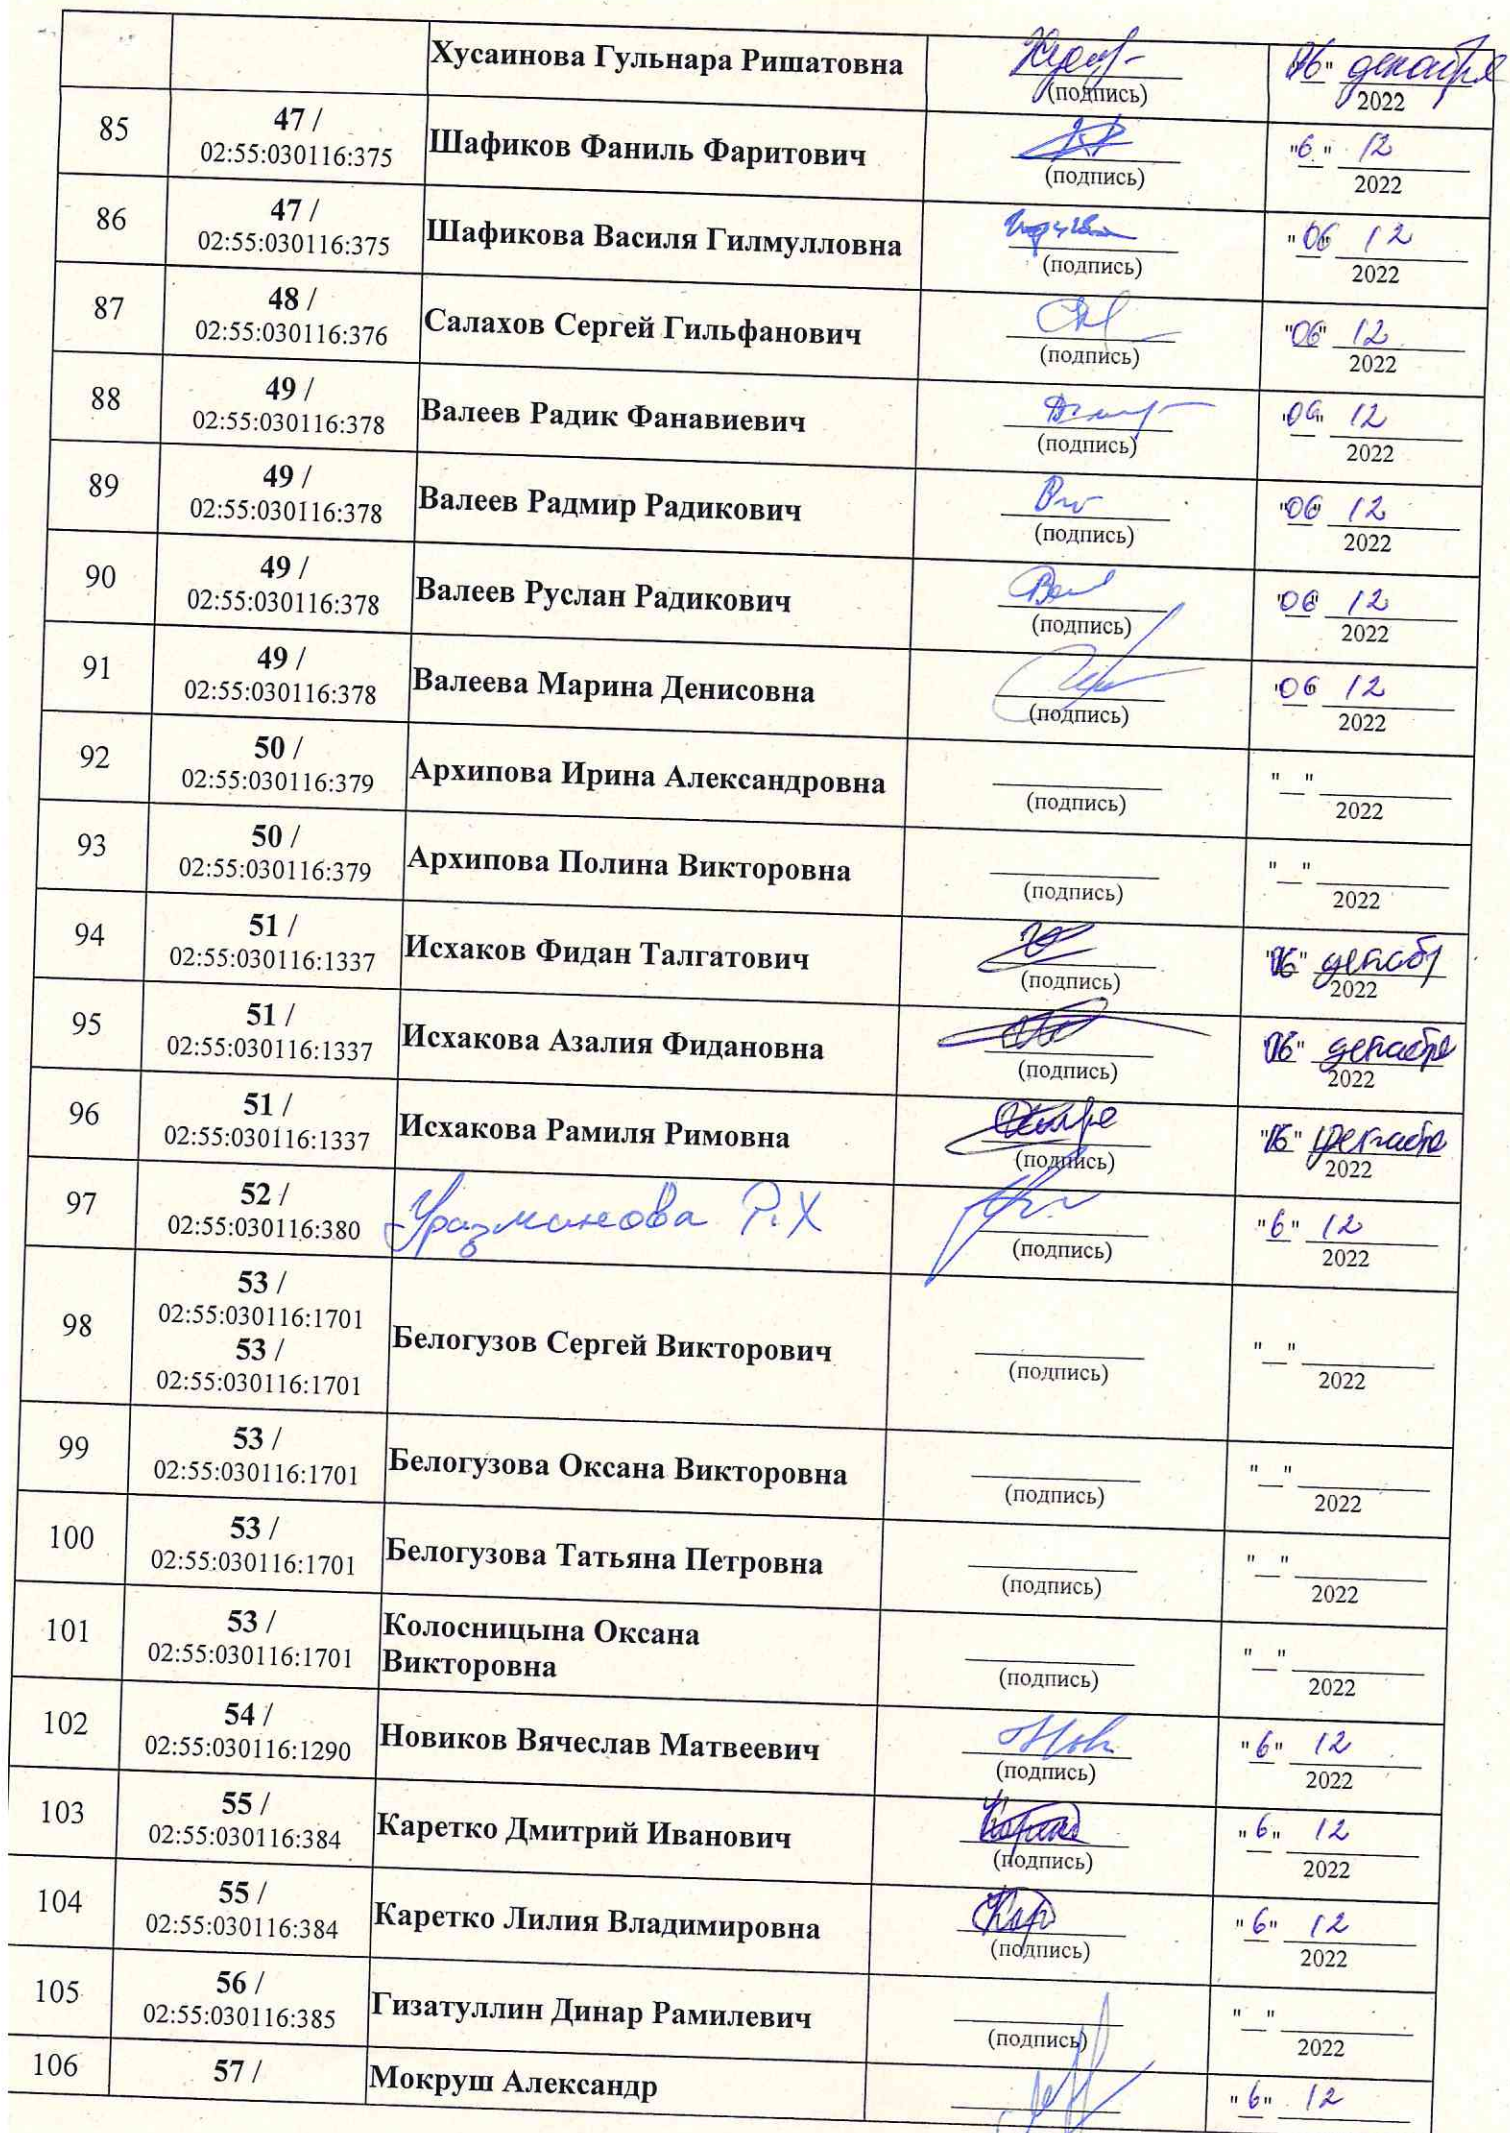 Хусаинова Гульнара Ришатовна
(подпись)
"06" декабря
2022
85
47 /
02:55:030116:375
Шафиков Фаниль Фаритович
(подпись)
"6" 12
2022
86
47 /
02:55:030116:375
Шафикова Василя Гилмулловна
(подпись)
"06" 12
2022
87
48 /
02:55:030116:376
Салахов Сергей Гильфанович
(подпись)
"06" 12
2022
88
49 /
02:55:030116:378
Валеев Радик Фанавиевич
(подпись)
"06" 12
2022
89
49 /
02:55:030116:378
Валеев Радмир Радикович
(подпись)
"06" 12
2022
90
49 /
02:55:030116:378
Валеев Руслан Радикович
(подпись)
"06" 12
2022
91
49 /
02:55:030116:378
Валеева Марина Денисовна
(подпись)
"06" 12
2022
92
50 /
02:55:030116:379
Архипова Ирина Александровна
(подпись)
"__" ________
2022
93
50 /
02:55:030116:379
Архипова Полина Викторовна
(подпись)
"__" ________
2022
94
51 /
02:55:030116:1337
Исхаков Фидан Талгатович
(подпись)
"06"
2022
95
51 /
02:55:030116:1337
Исхакова Азалия Фидановна
(подпись)
"06" декабря
2022
96
51 /
02:55:030116:1337
Исхакова Рамиля Римовна
(подпись)
"06" декабря
2022
97
52 /
02:55:030116:380
Уразманова Р.Х
(подпись)
"6" 12
2022
98
53 /
02:55:030116:1701
53 /
02:55:030116:1701
Белогузов Сергей Викторович
(подпись)
"__" ________
2022
99
53 /
02:55:030116:1701
Белогузова Оксана Викторовна
(подпись)
"__" ________
2022
100
53 /
02:55:030116:1701
Белогузова Татьяна Петровна
(подпись)
"__" ________
2022
101
53 /
02:55:030116:1701
Колосницына Оксана
Викторовна
(подпись)
"__" ________
2022
102
54 /
02:55:030116:1290
Новиков Вячеслав Матвеевич
(подпись)
"6" 12
2022
103
55 /
02:55:030116:384
Каретко Дмитрий Иванович
(подпись)
"6" 12
2022
104
55 /
02:55:030116:384
Каретко Лилия Владимировна
(подпись)
"6" 12
2022
105
56 /
02:55:030116:385
Гизатуллин Динар Рамилевич
(подпись)
"__" ________
2022
106
57 /
Мокруш Александр
"6" 12